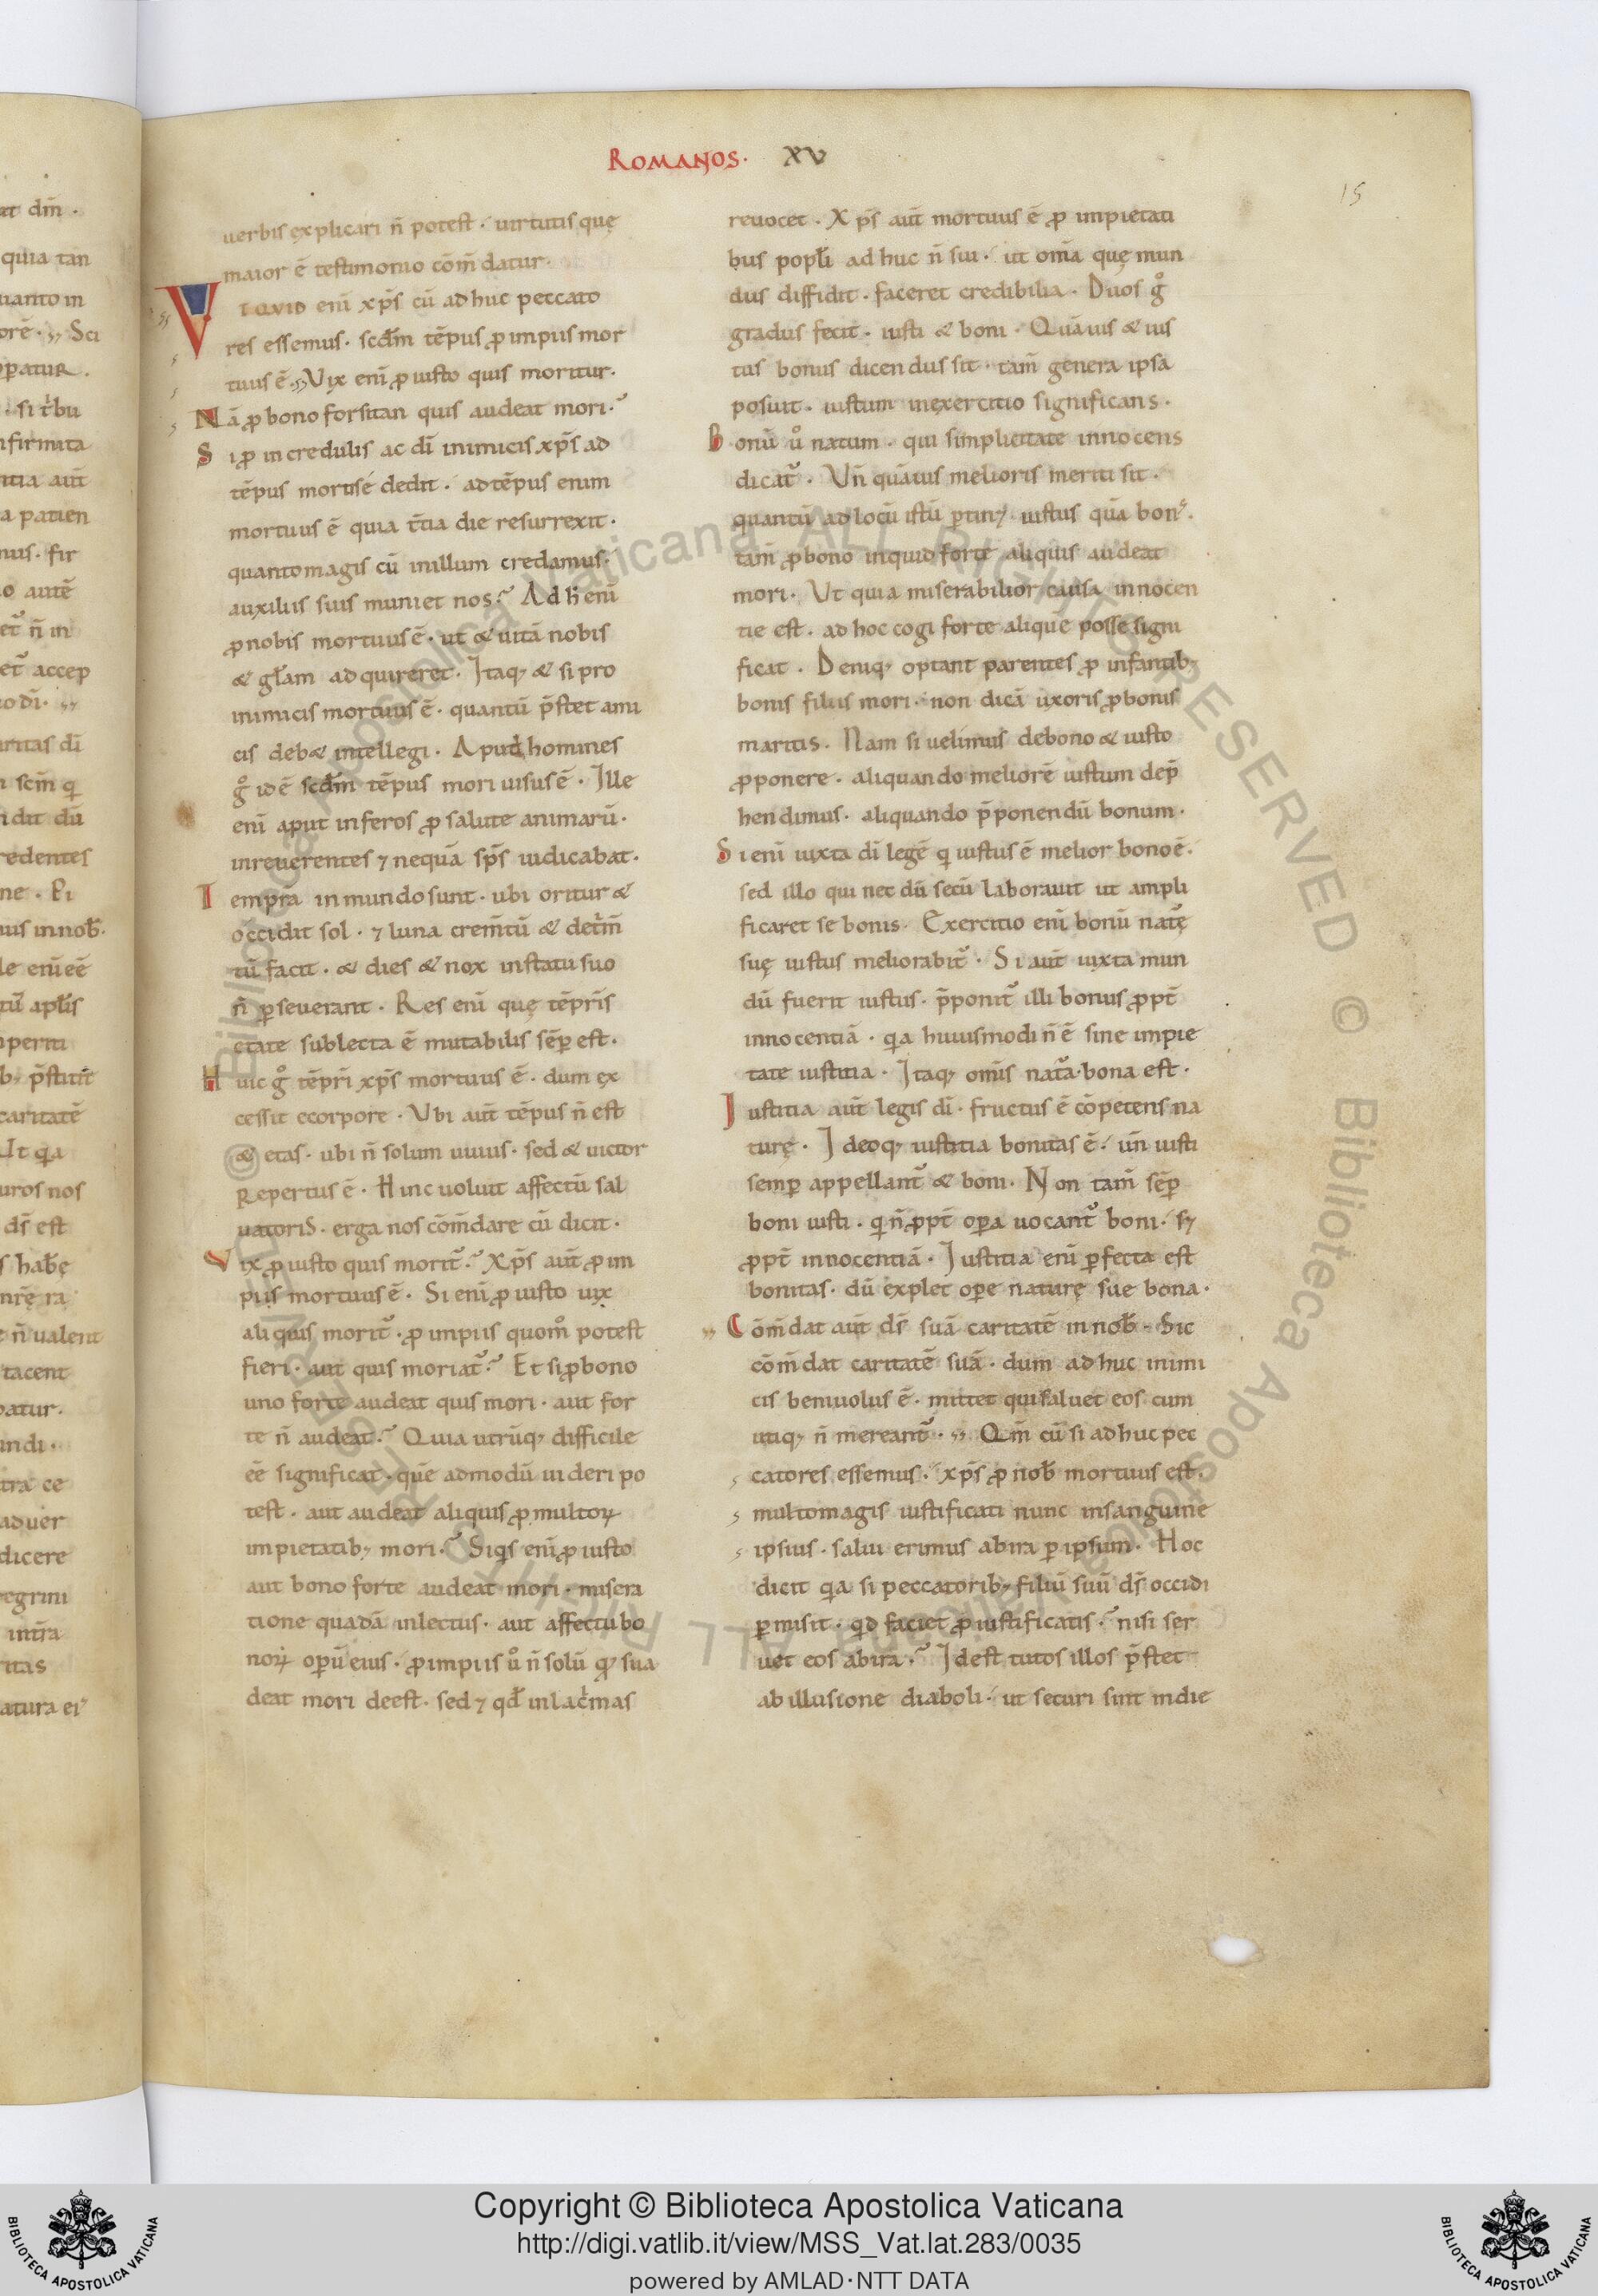 ROMANOS. XV
15
uerbis explicari n̄ potest. uirtutis quę
maior ē testimonio cōm̄datur.
VT QVID eni xp̄s cū adhuc peccato
res essemus. scd̄m tēpus ꝓ impiis mor
tuus ē. Vix enī ꝓ iusto quis moritur.
Nā ꝓ bono forsitan quis audeat mori.
Si ꝓ incredulis ac dī inimicis xp̄s ad
tēpus morti sé dedit. ad tēpus enim
mortuus ē quia t̄tia die resurrexit.
quanto magis cū in illum credamus.
auxiliis suis muniet nos. Ad h̄ enī
ꝓ nobis mortuus ē. ut & uitā nobis
& gl̄am adquireret. Itaq; & si pro
inimicis mortuus ē. quantū p̄stet ami
cis deb& intellegi. Apud homines
g̊ idē scd̄m tēpus mori uisus ē. Ille
enī aput inferos ꝓ salute animarū.
inreuerentes ⁊ nequā sp̄s iudicabat.
Tempra in mundo sunt. ubi oritur &
occidit sol. ⁊ luna crem̄tū & det̄m̄
tū facit. & dies & nox in statu suo
n̄ ꝑseuerant. Res enī quę tēpris
etate subiecta ē mutabilis sēꝑ est.
Huic g̊ tēpri xp̄s mortuus ē. dum ex
cessit e corpore. Vbi aūt tēpus n̄ est
& etas. ubi n̄ solum uiuus. sed & uictor
Repertus ē. Hinc uoluit affectū sal
uatoris. erga nos cōm̄dare cū dicit.
Vix ꝓ iusto quis morit̄. Xp̄s aūt ꝓ im
piis mortuus ē. Si enī ꝓ iusto uix
aliquis morit̄. ꝓ impiis quom̊ potest
fieri. aut quis moriat̄. Et si ꝓ bono
uno forte audeat quis mori. aut for
te n̄ audeat. Quia utrūq; difficile
ēē significat. quē admodū uideri po
test. aut audeat aliquis ꝓ multoꝝ
impietatib; mori. Siq̇s enī ꝓ iusto
aut bono forte audeat mori. misera
tione quadā inlectus. aut affectu bo
noꝝ oꝑū eius. ꝓ impiis ů n̄ solū sua
deat mori deest. sed ⁊ qđ in lac̄mas
reuocet. Xp̄s aūt mortuus ē ꝓ impietati
bus popl̄i adhuc n̄ sui. ut om̄a quę mun
dus diffidit. faceret credibilia. Duos g̊
gradus fecit. iusti & boni. Quāuis & ius
tus bonus dicendus sit. tam̄ genera ipsa
posuit. iustum in exercitio significans.
Bonū ů natum. qui simplicitate innocens
dicat̄. Un̄ quāuis melioris meriti sit.
quantū ad locū istū ꝑtin; iustus quā bon᾿.
tam̄ ꝓ bono inquid forte aliquis audeat
mori. Ut quia miserabilior causa innocen
tie est. ad hoc cogi forte aliquē posse signi
ficat. Deniq; optant parentes ꝓ infantib;
bonis filiis mori. non dicā uxoris ꝓ bonis
maritis. Nam si uelimus de bono & iusto
ꝓponere. aliquando meliorē iustum dep̄
hendimus. aliquando p̄ponendū bonum.
Si enī iuxta dī legē q iustus ē melior bono ē.
sed illo qui nec dū secū laborauit ut ampli
ficaret se bonis. Exercitio enī bonū nat̄ę
suę iustus meliorabit̄. Si aūt iuxta mun
dū fuerit iustus. p̄ponit̄ illi bonus ꝓpt̄
innocentiā. qa huiusmodi n̄ ē sine impie
tate iustitia. Itaq; om̄is nat̄a bona est.
Iustitia aūt legis dī. fructus ē cōpetens na
turę. Ideoq; iustitia bonitas ē. un̄ iusti
semꝑ appellant̄ & boni. Non tam̄ sēꝑ
boni iusti. q n̄ ꝓpt̄ oꝑa uocant̄ boni. s;
ꝓpt̄ innocentiā. Iustitia enī ꝑfecta est
bonitas. dū explet oꝑe naturę sue bona.
Cōm̄dat aūt ds̄ suā caritatē in nob̄. Sic
cōm̄dat caritatē suā. dum adhuc inimi
cis beniuolus ē. mittet qui saluet eos cum
utiq; n̄ mereant̄. Qm̄ cū si adhuc pec
catores essemus. xp̄s ꝓ nob̄ mortuus est.
multo magis iustificati nunc in sanguine
ipsius. salui erimus ab ira ꝑ ipsum. Hoc
dicit qa si peccatorib; filiū suū ds̄ occidi
ꝑmisit. qd faciet ꝓ iustificatis. nisi ser
uet eos ab ira. Id est tutos illos p̄stet
ab illusione diaboli. ut securi sint in die
© Biblioteca Apostolica Vaticana ALL RIGHTS RESERVED
Copyright © Biblioteca Apostolica Vaticana
http://digi.vatlib.it/view/MSS_Vat.lat.283/0035
powered by AMLAD·NTT DATA
BIBLIOTECA APOSTOLICA VATICANA
BIBLIOTECA APOSTOLICA VATICANA